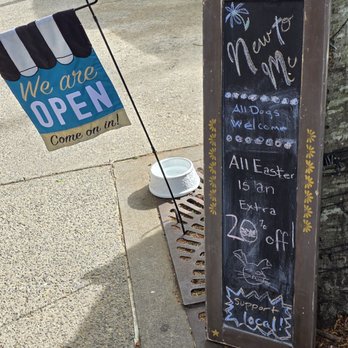 We are
OPEN
Come on in!
New to
Me
All Dogs
Welcome
All Easter
Is an
Extra
20% off!
Support
local!